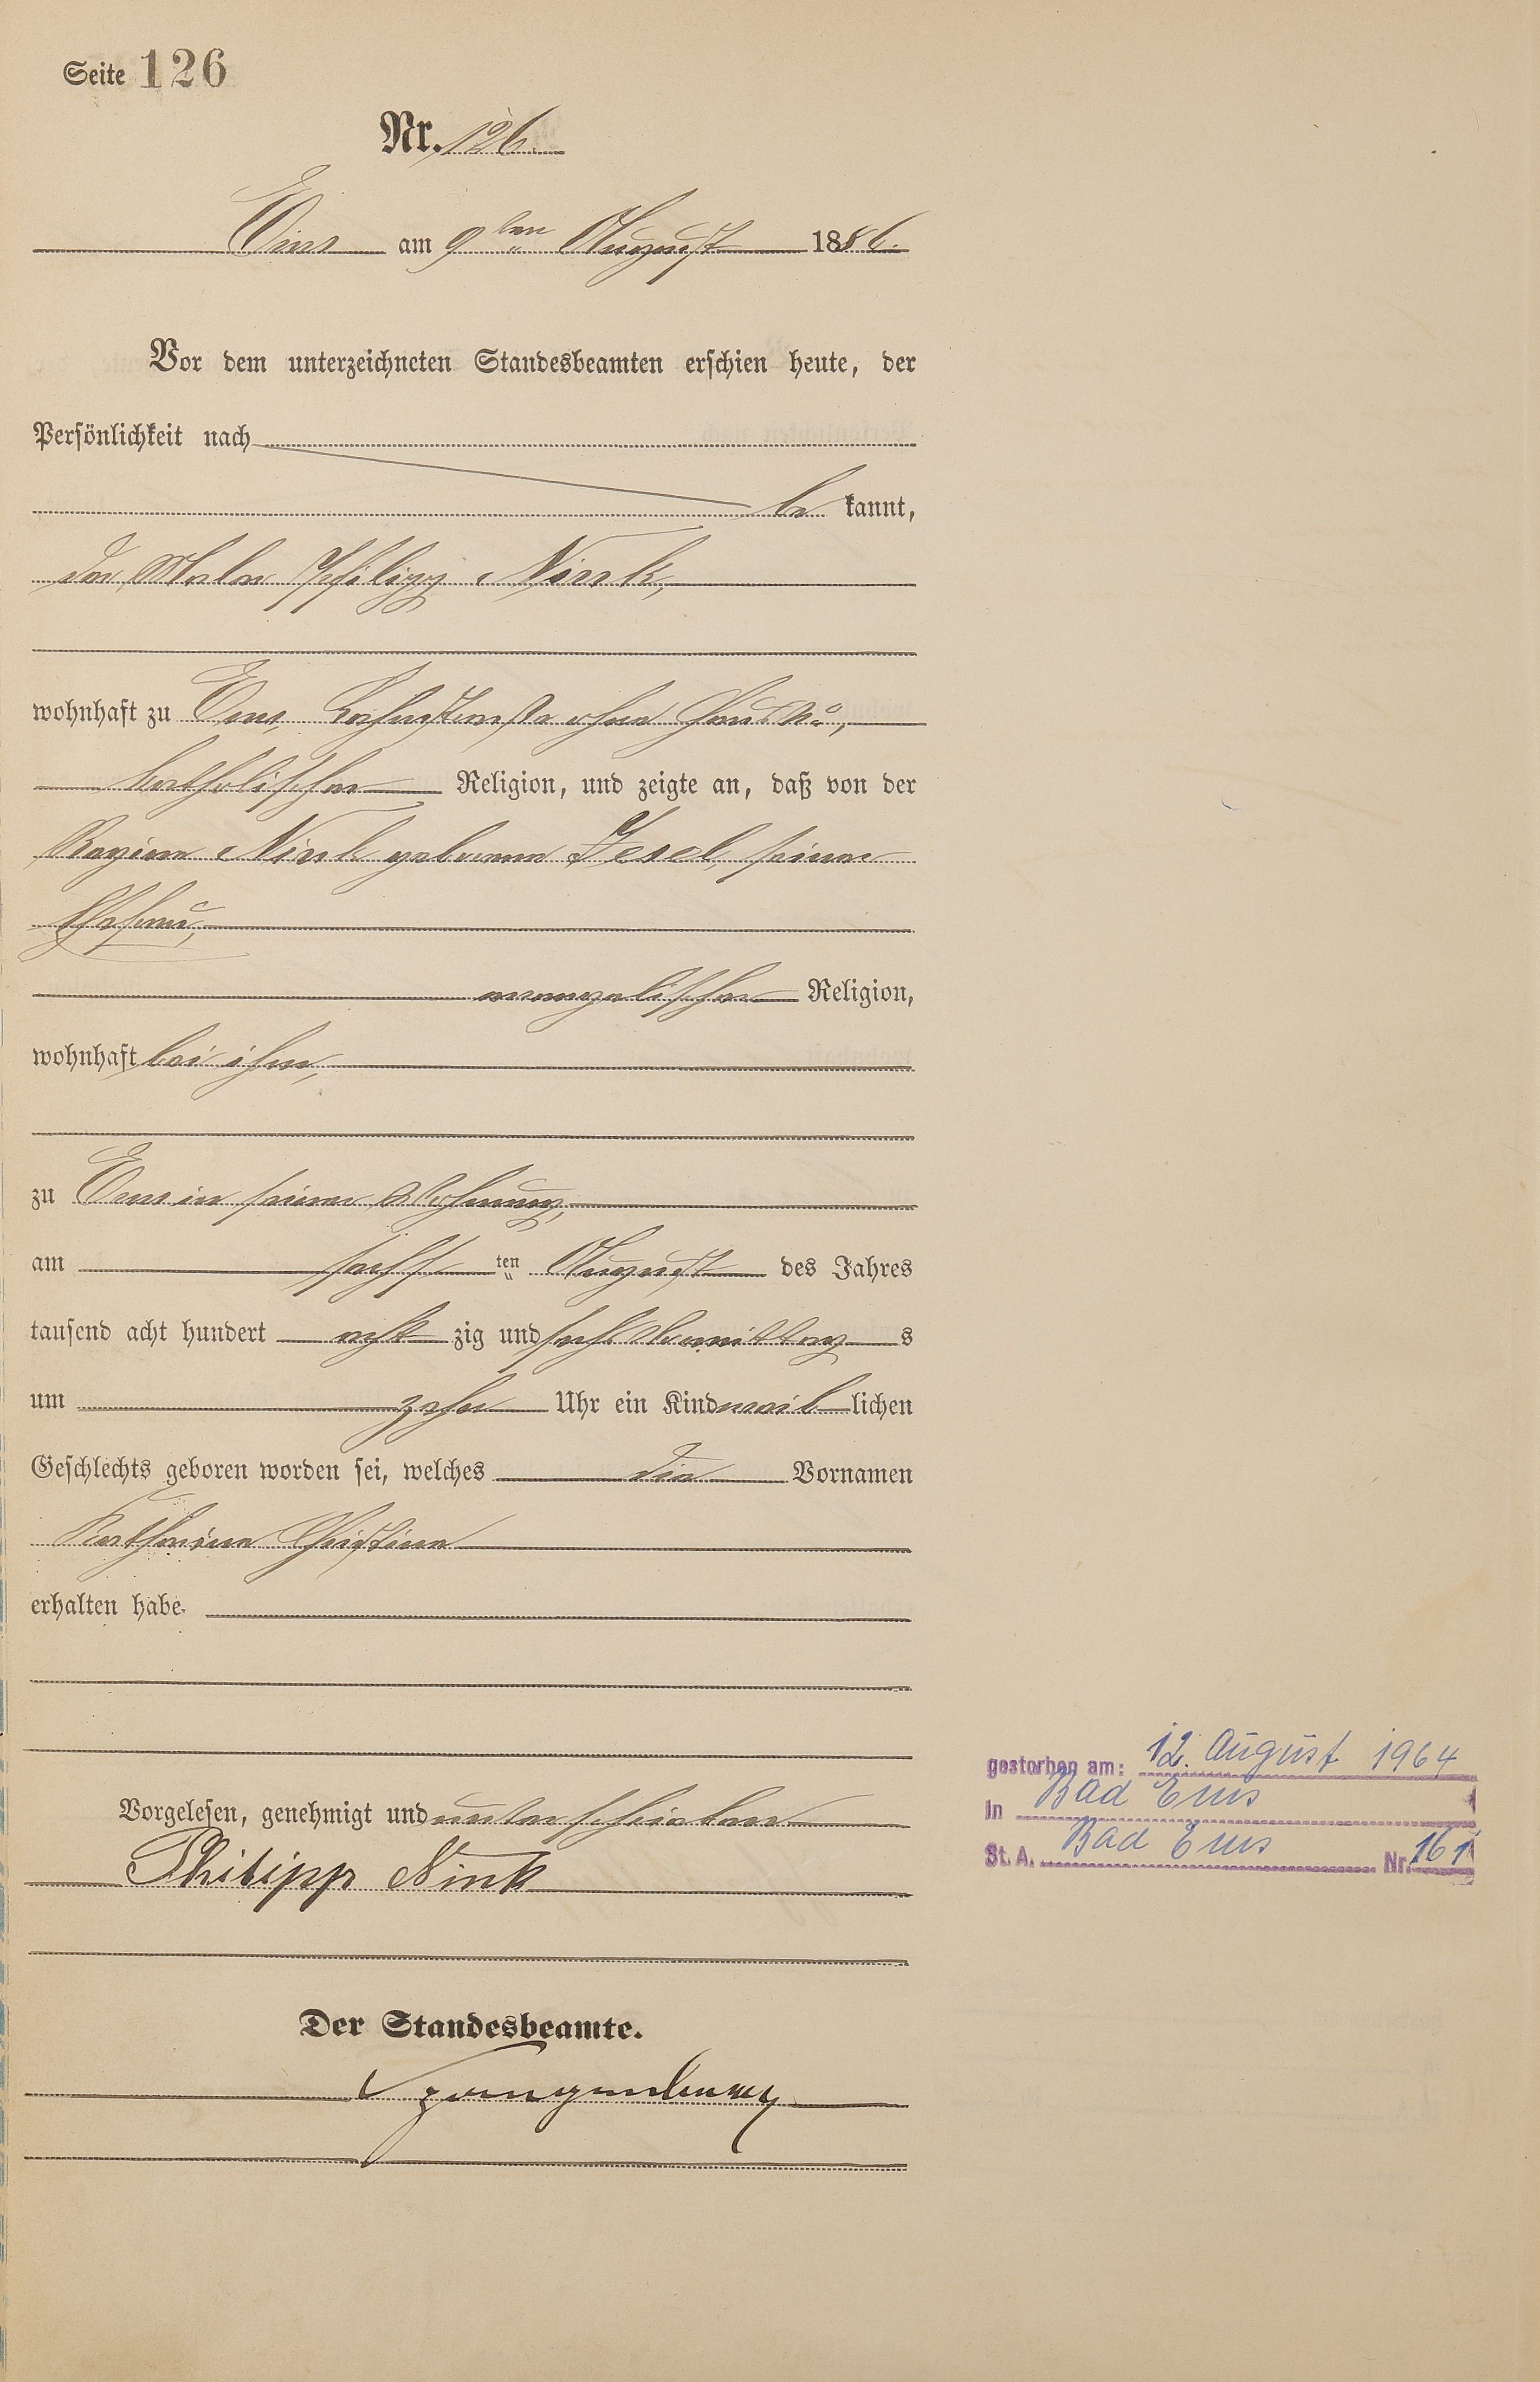 Seite 126
Nr. 126.
Ems am 9ten August 1886.
Vor dem unterzeichneten Standesbeamten erschien heute, der
Persönlichkeit nach
be kannt,
der Maler Philipp Nink,
wohnhaft zu Ems, Lahnstraße ohne Haus No,
katholischer Religion, und zeigte an, daß von der
Regina Nink geborene Jesel, seiner
Ehefrau,
evangelischer Religion,
wohnhaft bei ihm,
zu Ems in seiner Wohnung,
am sechs ten August des Jahres
tausend acht hundert acht zig und sechs Vormittag s
um zehn Uhr ein Kind weib lichen
Geschlechts geboren worden sei, welches die Vornamen
Katharina Christina
erhalten habe.
Vorgelesen, genehmigt und unterschrieben
Philipp Nink
Der Standesbeamte.
gestorben am: 12. August 1964
In Bad Ems
St. A. Bad Ems Nr. 161